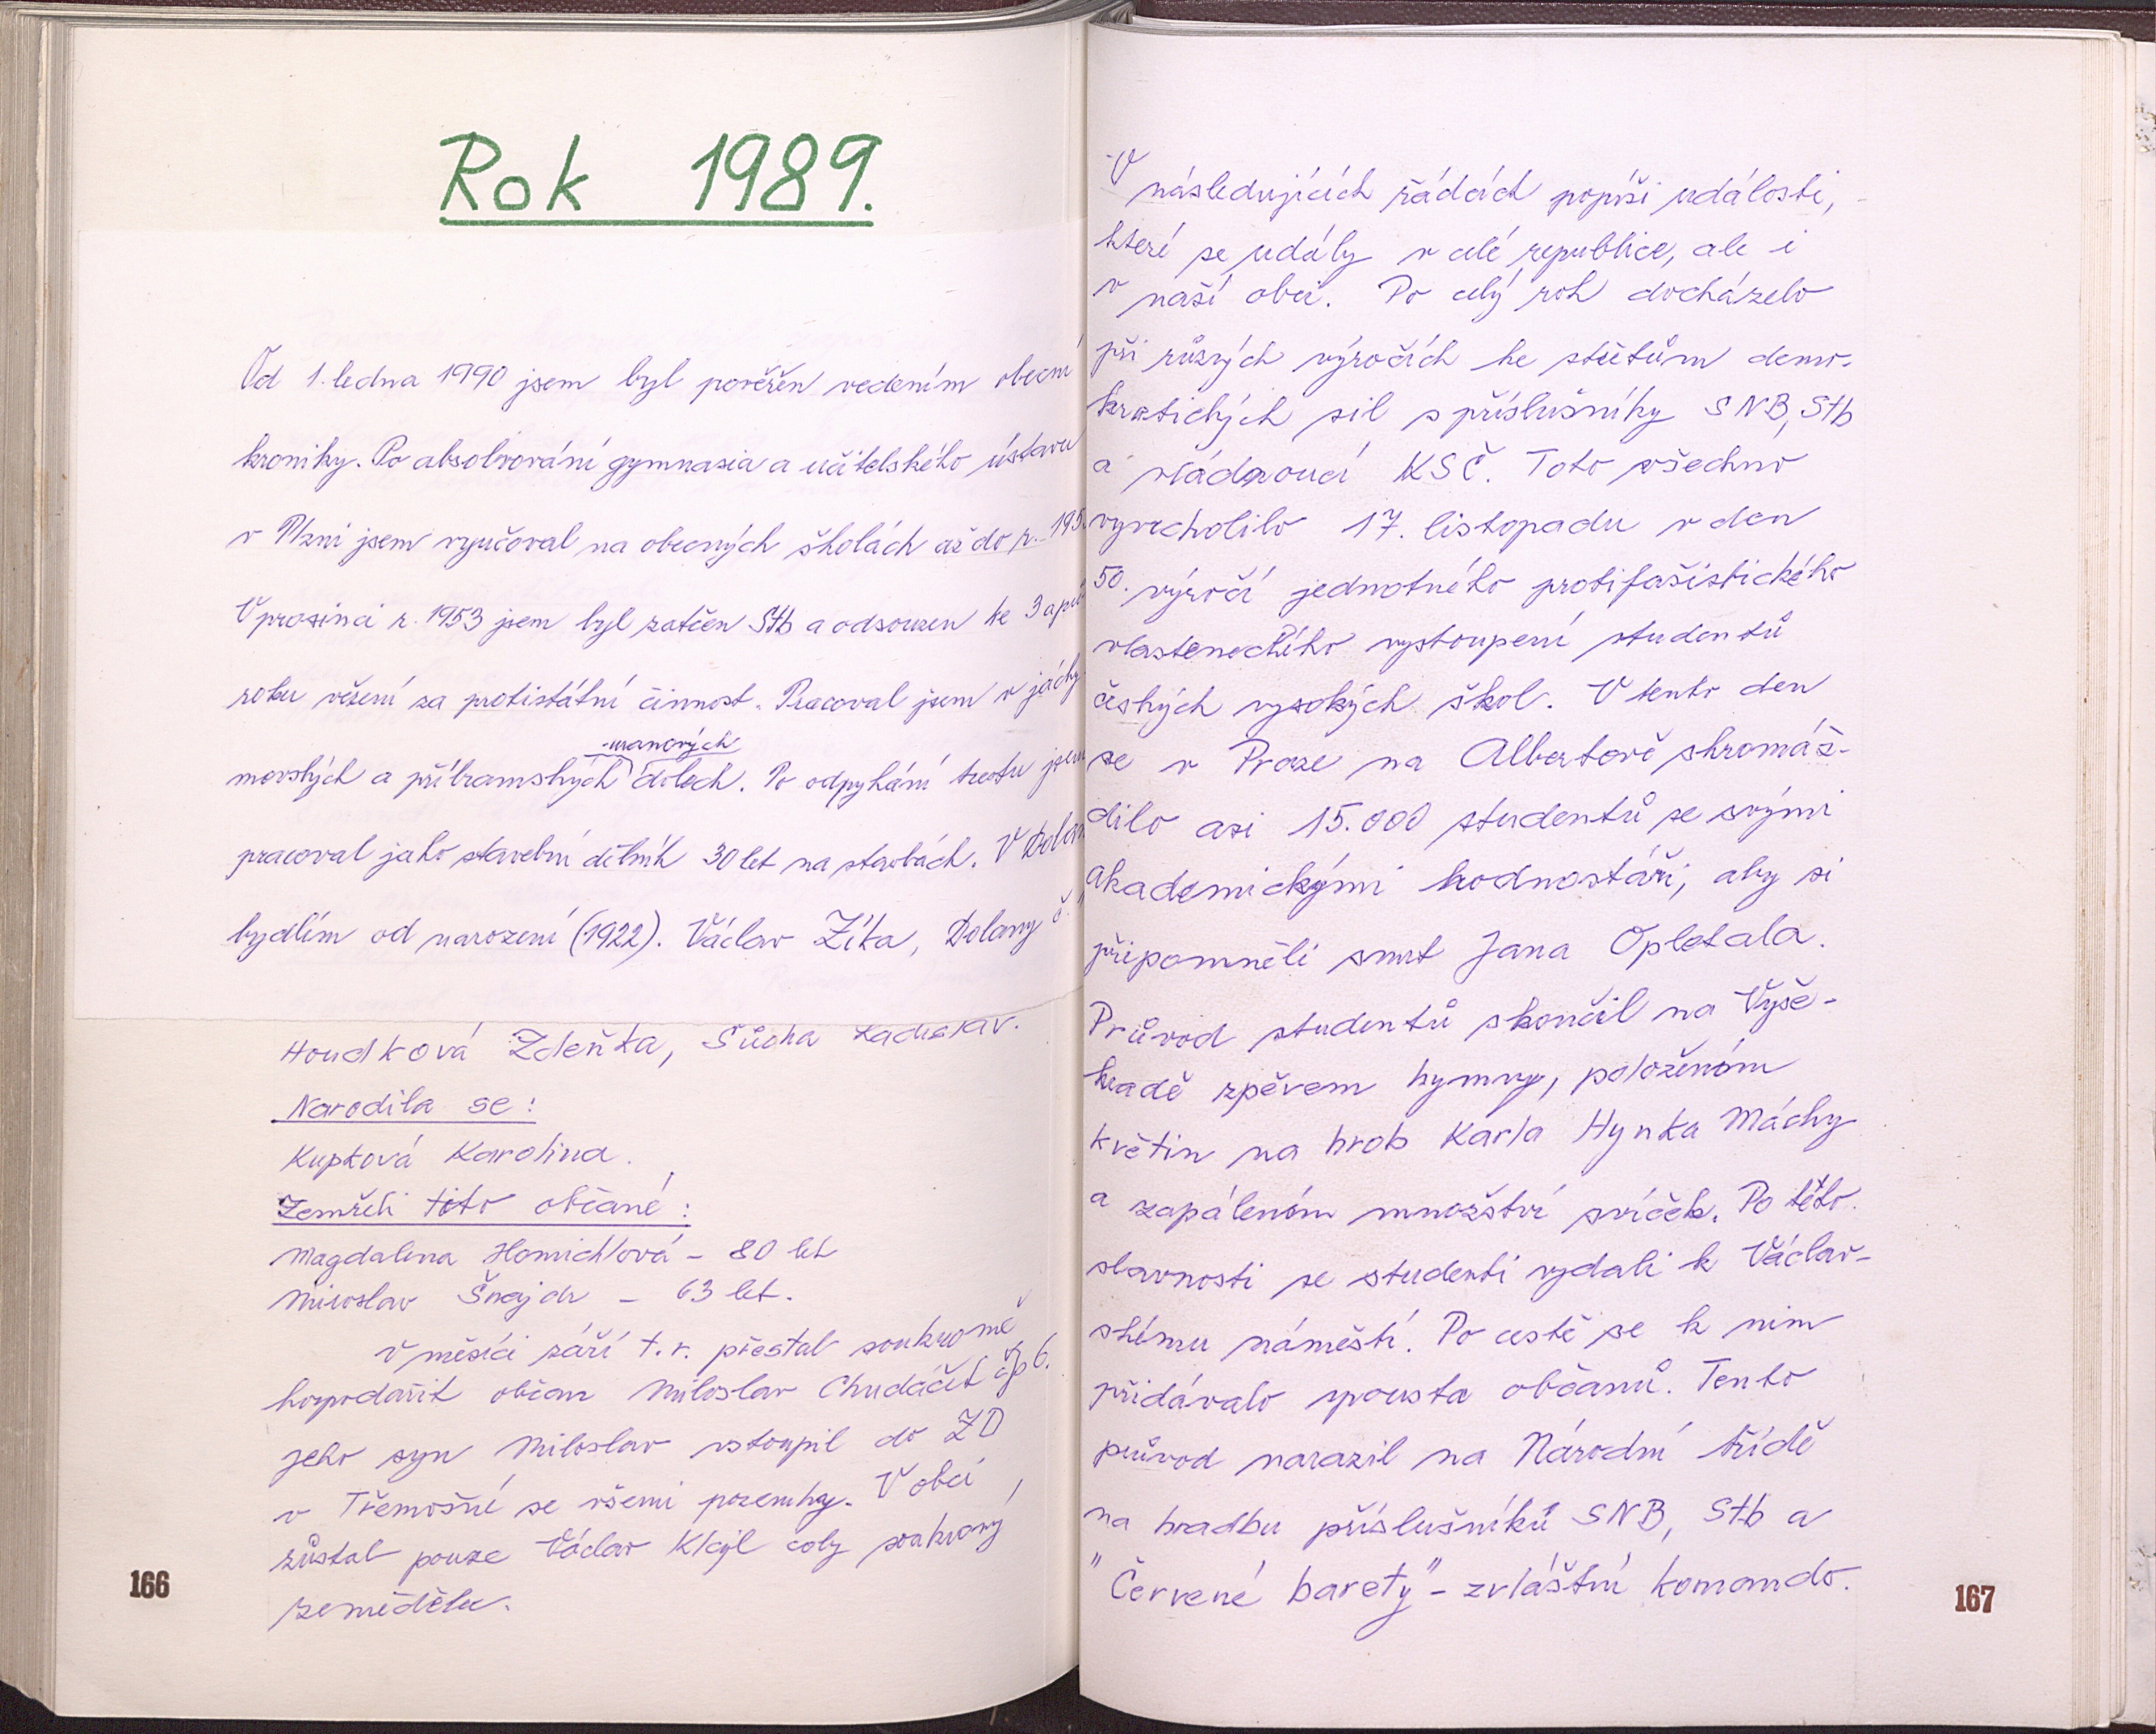 Rok 1989.
Od 1. ledna 1990 jsem byl pověřen vedením obecní
kroniky. Po absolvování gymnasia a učitelského ústavu
v Plzni jsem vyučoval na obecných školách až do r. 195
V prosinci r. 1953 jsem byl zatčen Stb a odsouzen ke 3 a půl
roku vězení za protistátní činnost. Pracoval jsem v jáchy
uranových
movských a příbramských dolech. Po odpykání trestu jsem
pracoval jako stavební dělník 30 let na stavbách. V Dolan
bydlím od narození (1922). Václav Zíka, Dolany č.
Houdková Zdeňka, Sůcha Ladislav.
Narodila se:
Kupková Karolina.
Zemřeli tito občané:
Magdalena Homichlová - 80 let
Miroslav Šnajdr - 63 let.
V měsíci září t.r. přestal soukromě
hospodařit občan Miloslav Chudáček čp 6.
jeho syn Miloslav vstoupil do ZD
v Třemošné se všemi pozemky. V obci
zůstal pouze Václav Klajl coby soukromý
zemědělec.
166
V následujících řádcích popíši události,
které se udály v celé republice, ale i
v naší obci. Po celý rok docházelo
při různých výročích ke střetům demo-
kratických sil s příslušníky SNB, Stb
a vládnoucí KSČ. Toto všechno
vyvrcholilo 17. listopadu v den
50. výročí jednotného protifašistického
vlasteneckého vystoupení studentů
českých vysokých škol. V tento den
se v Praze na Albertově shromáž-
dilo asi 15.000 studentů se svými
akademickými hodnostáři, aby si
připomněli smrt Jana Opletala.
Průvod studentů skončil na Vyše-
hradě zpěvem hymny, položením
květin na hrob Karla Hynka Máchy
a zapálením množství svíček. Po této
slavnosti se studenti vydali k Václav-
skému náměstí. Po cestě se k nim
přidávalo spousta občanů. Tento
průvod narazil na Národní třídě
na hradbu příslušníků SNB, Stb a
"Červené barety" - zvláštní komando.
167